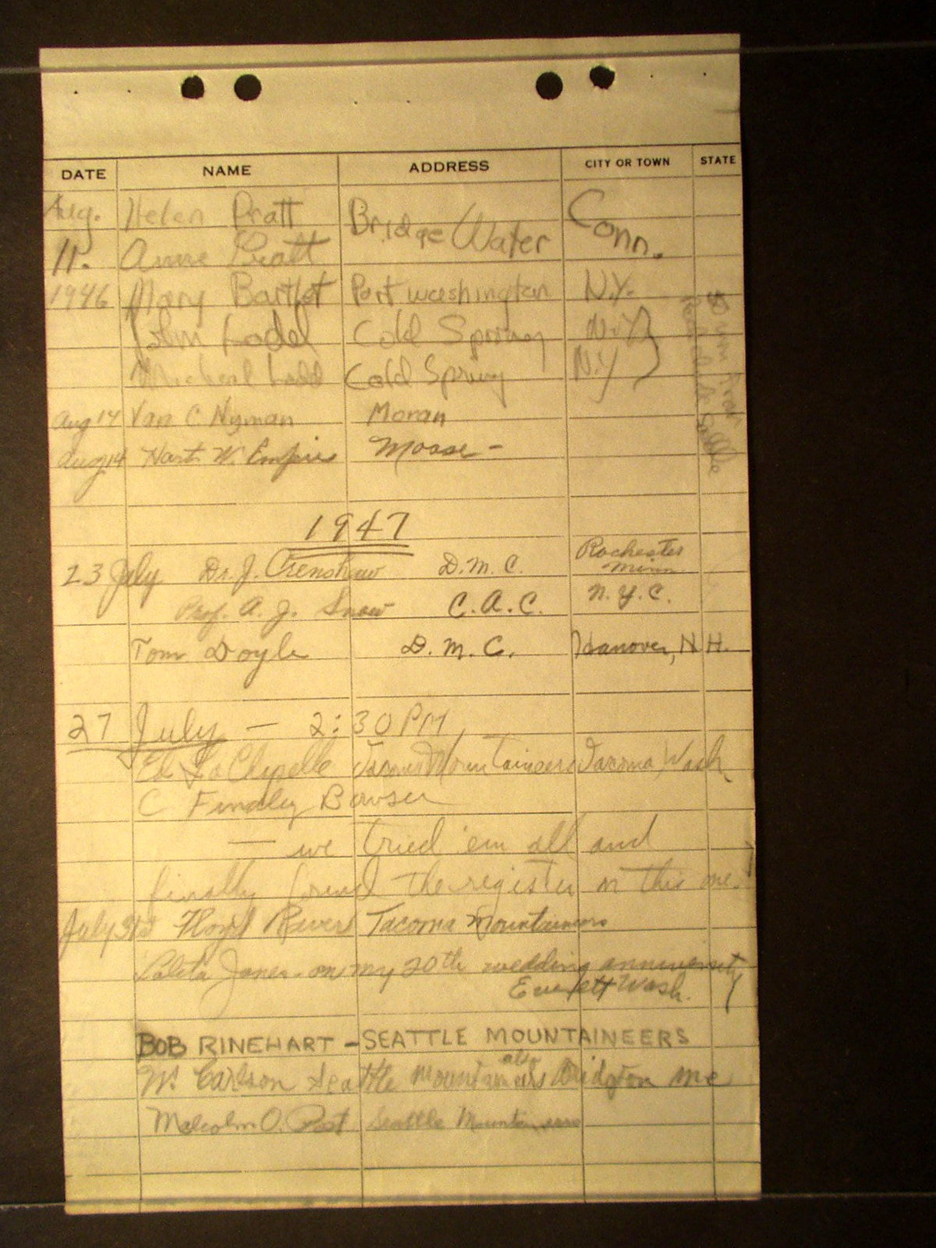 DATE NAME ADDRESS CITY OR TOWN STATE
Aug. Helen Pratt Bridge Water Conn.
11. Anne Pratt
1946 Mary Port Washington N.Y.
John Cold Spring N.Y.
Micheal Ladd Cold Spring N.Y.
Aug 14 Van C. Nyman Moran
Aug 14 Hart W. Empire Moose -
1947
23 July Dr. J. Crenshaw D.M.C. Rochester Minn.
Prof. A. J. Snow C.A.C. N.Y.C.
Tom Doyle D.M.C. Hanover, N.H.
27 July — 2:30 PM
Ed LaChapelle Mountaineers Tacoma, Wash
C Findley Bowser
— we tried 'em all and
finally found the register on this one!
July 31st Floyd Tacoma Mountaineers
Jones - on my 20th wedding anniversity
Everett Wash.
BOB RINEHART - SEATTLE MOUNTAINEERS
Wm Carlson Seattle Mountaineers also Bridgton Me
Malcolm O. Post Seattle Mountaineers